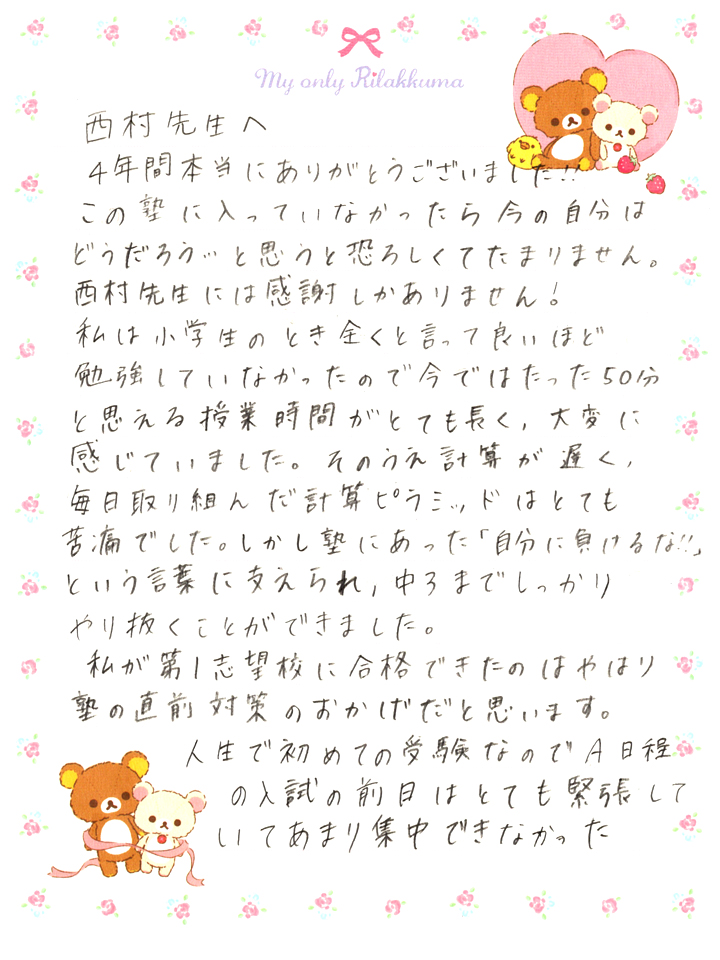 My only Rilakkuma
西村先生へ
4年間本当にありがとうございました!!
この塾に入っていなかったら今の自分は
どうだろう…と思うと恐ろしくてたまりません。
西村先生には感謝しかありません!
私は小学生のとき全くと言って良いほど
勉強していなかったので今ではたった50分
と思える授業時間がとても長く、大変に
感じていました。そのうえ計算が遅く、
毎日取り組んだ計算ピラミッドはとても
苦痛でした。しかし塾にあった「自分に負けるな!!」
という言葉に支えられ、中3までしっかり
やり抜くことができました。
私が第1志望校に合格できたのはやはり
塾の直前対策のおかげだと思います。
人生で初めての受験なのでA日程
の入試の前日はとても緊張して
いてあまり集中できなかった